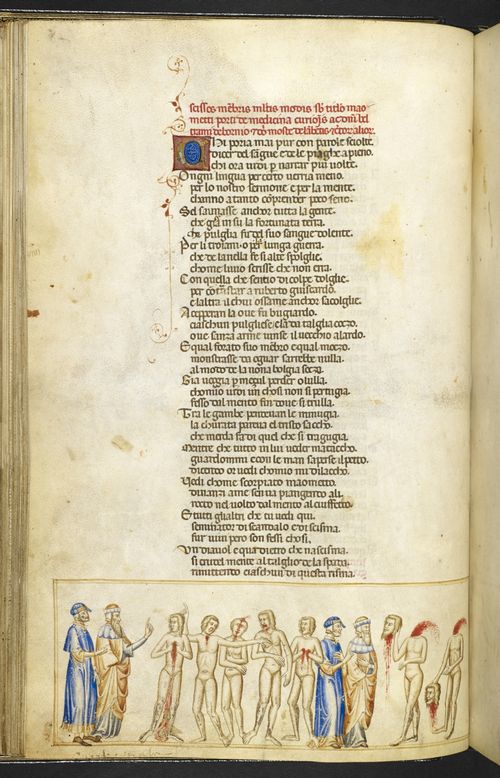 scissos mēbris multis modis sb titlo mao
metti porti de medicina curiōis ac dñi bel
trami de bornio
Chi poria mai pur con parole sciolte.
Dicer del sangue e de le piaghe a pieno.
chi ora uidi p narrar piu uolte.
Ongni lingua per certo uerria meno.
per lo nostro sermone e per la mente.
channo a tanto cōprender poco seno.
Sel saunasse anchor tutta la gente.
che gia in su la fortunata terra.
che pulglia fu del suo sangue dolente.
Per li troiani o per lunga guerra.
che de lanella fe si alte spolglie.
chome liuio scrisse che non erra.
Con quella che sentio di colpe dolglie.
per cōtrastar a ruberto guiscardo.
e laltra il chui ossame anchor sacolglie.
A ceperan la oue fu bugiardo.
ciaschun pulgliese e la da talgliacozo.
oue sanza arme uinse il uecchio alardo.
E qual forato suo mēbro e qual mozo.
monstrasse da eguar sarebbe nulla.
al modo de la nona bolgia sozza.
Gia ueggia p mezul perder o lulla.
chomio uidi un chosi non si pertugia.
fesso dal mento fin doue si trulla.
Tra le gambe pendeuan le minugia.
la churata pareua el tristo saccho.
che merda fa di quel che si trangugia.
Mentre che tutto in lui ueder mataccho.
guardommi e con le man saperse il petto.
dicendo or uedi chomio mi dilaccho.
Uedi chome scorpiato maometto.
dinanzi a me sen ua piangendo ali.
rotto nel uolto dal mento al ciuffetto.
E tutti glialtri che tu uedi qui.
seminator di scandalo e di scisma.
fur uiui pero son fessi chosi.
Un diauol e qua dietro che nascisma.
si crudel mente al talglio de la spada.
rimittendo ciaschun di questa risma.